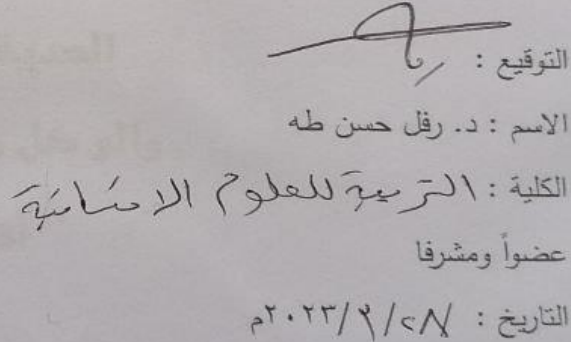 التوقيع :
الاسم : د. رفل حسن طه
الكلية : التربية للعلوم الانسانية
عضواً ومشرفا
التاريخ : ٢٨/٩/٢٠٢٣م